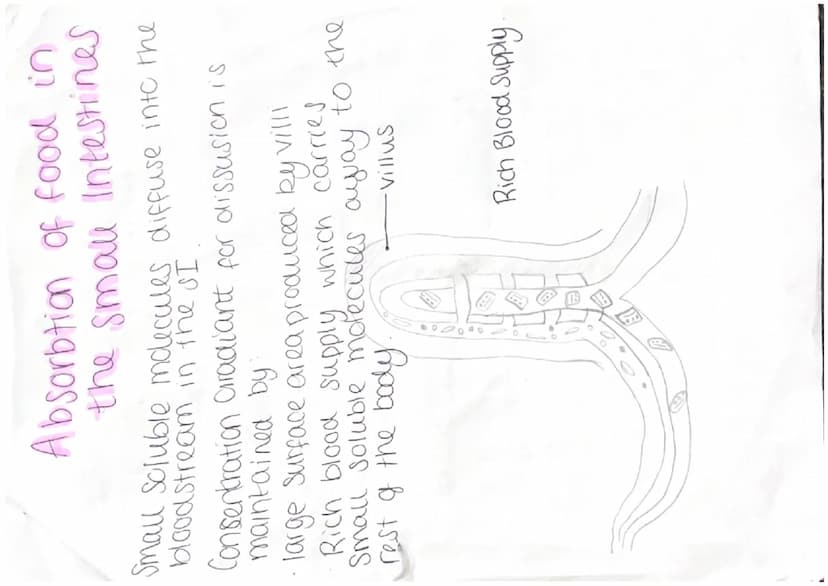 Absorbtion of food in
the small Intestines
Small Soluble molecules diffuse into the
bloodstream in the SI.
Consentration Gradiant for dissusion is
maintained by:
· large surface area produced by villi
Rich blood supply which carries
small soluble molecules away to the
rest of the body
villus
Rich Blood Supply